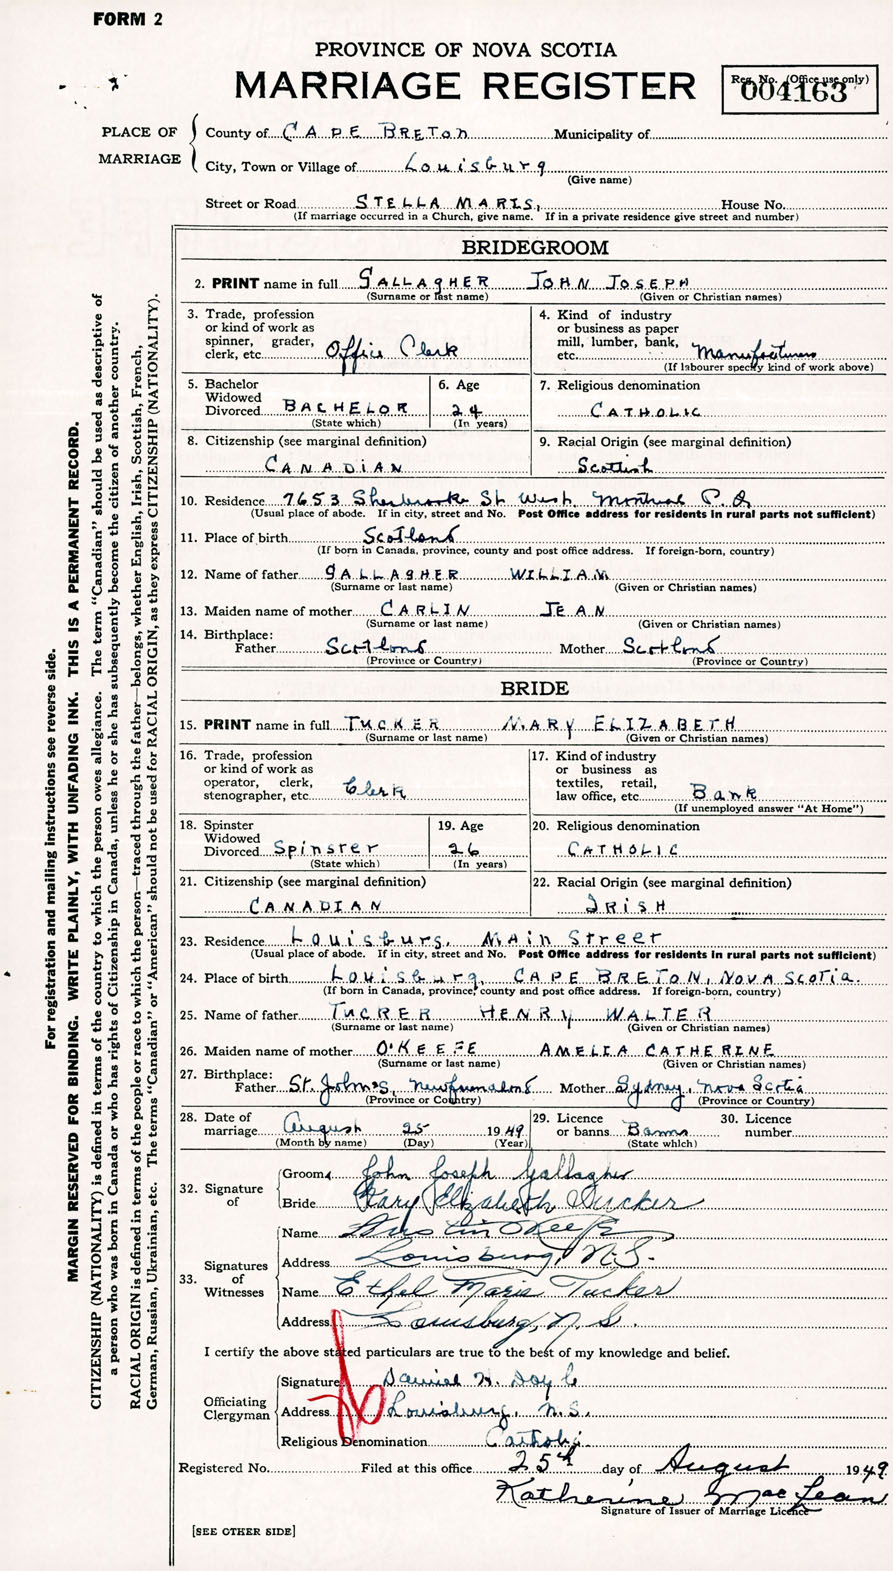 FORM 2
PROVINCE OF NOVA SCOTIA
MARRIAGE REGISTER
Reg. No. (Office use only)
004163
PLACE OF MARRIAGE
County of CAPE BRETON Municipality of
City, Town or Village of Louisburg
(Give name)
Street or Road STELLA MARIS, House No.
(If marriage occurred in a Church, give name. If in a private residence give street and number)
BRIDEGROOM
2. PRINT name in full GALLAGHER JOHN JOSEPH
(Surname or last name) (Given or Christian names)
3. Trade, profession or kind of work as spinner, grader, clerk, etc. Office Clerk
4. Kind of industry or business as paper mill, lumber, bank, etc. Manufacturers
(If labourer specify kind of work above)
5. Bachelor Widowed Divorced BACHELOR
(State which)
6. Age 24
(In years)
7. Religious denomination
CATHOLIC
8. Citizenship (see marginal definition)
CANADIAN
9. Racial Origin (see marginal definition)
Scottish
10. Residence 7653 Sherbrooke St. West. Montreal P.Q
(Usual place of abode. If in city, street and No. Post Office address for residents in rural parts not sufficient)
11. Place of birth Scotland
(If born in Canada, province, county and post office address. If foreign-born, country)
12. Name of father GALLAGHER WILLIAM
(Surname or last name) (Given or Christian names)
13. Maiden name of mother CARLIN JEAN
(Surname or last name) (Given or Christian names)
14. Birthplace:
Father Scotland Mother Scotland
(Province or Country) (Province or Country)
BRIDE
15. PRINT name in full TUCKER MARY ELIZABETH
(Surname or last name) (Given or Christian names)
16. Trade, profession or kind of work as operator, clerk, stenographer, etc. Clerk
17. Kind of industry or business as textiles, retail, law office, etc. Bank
(If unemployed answer "At Home")
18. Spinster Widowed Divorced Spinster
(State which)
19. Age 26
(In years)
20. Religious denomination
CATHOLIC
21. Citizenship (see marginal definition)
CANADIAN
22. Racial Origin (see marginal definition)
IRISH
23. Residence Louisburg, Main Street
(Usual place of abode. If in city, street and No. Post Office address for residents in rural parts not sufficient)
24. Place of birth Louisburg, CAPE BRETON, NOVA SCOTIA.
(If born in Canada, province, county and post office address. If foreign-born, country)
25. Name of father TUCKER HENRY WALTER
(Surname or last name) (Given or Christian names)
26. Maiden name of mother O'KEEFE AMELIA CATHERINE
(Surname or last name) (Given or Christian names)
27. Birthplace:
Father St. John's, Newfoundland Mother Sydney, Nova Scotia
(Province or Country) (Province or Country)
28. Date of marriage August 25 1949
(Month by name) (Day) (Year)
29. Licence or banns Banns
(State which)
30. Licence number
32. Signature of
Groom John Joseph Gallagher
Bride Mary Elizabeth Tucker
33. Signatures of Witnesses
Name Austin O'Keefe
Address Louisburg, N.S.
Name Ethel Marie Tucker
Address Louisburg, N.S.
I certify the above stated particulars are true to the best of my knowledge and belief.
Officiating Clergyman
Signature Daniel H. Doyle
Address Louisburg, N.S.
Religious Denomination Catholic
Registered No. Filed at this office 25th day of August 1949
Katherine MacLean
Signature of Issuer of Marriage Licence
[SEE OTHER SIDE]
For registration and mailing instructions see reverse side.
MARGIN RESERVED FOR BINDING. WRITE PLAINLY, WITH UNFADING INK. THIS IS A PERMANENT RECORD.
CITIZENSHIP (NATIONALITY) is defined in terms of the country to which the person owes allegiance. The term "Canadian" should be used as descriptive of
a person who was born in Canada or who has rights of Citizenship in Canada, unless he or she has subsequently become the citizen of another country.
RACIAL ORIGIN is defined in terms of the people or race to which the person—traced through the father—belongs, whether English, Irish, Scottish, French,
German, Russian, Ukrainian, etc. The terms "Canadian" or "American" should not be used for RACIAL ORIGIN, as they express CITIZENSHIP (NATIONALITY).